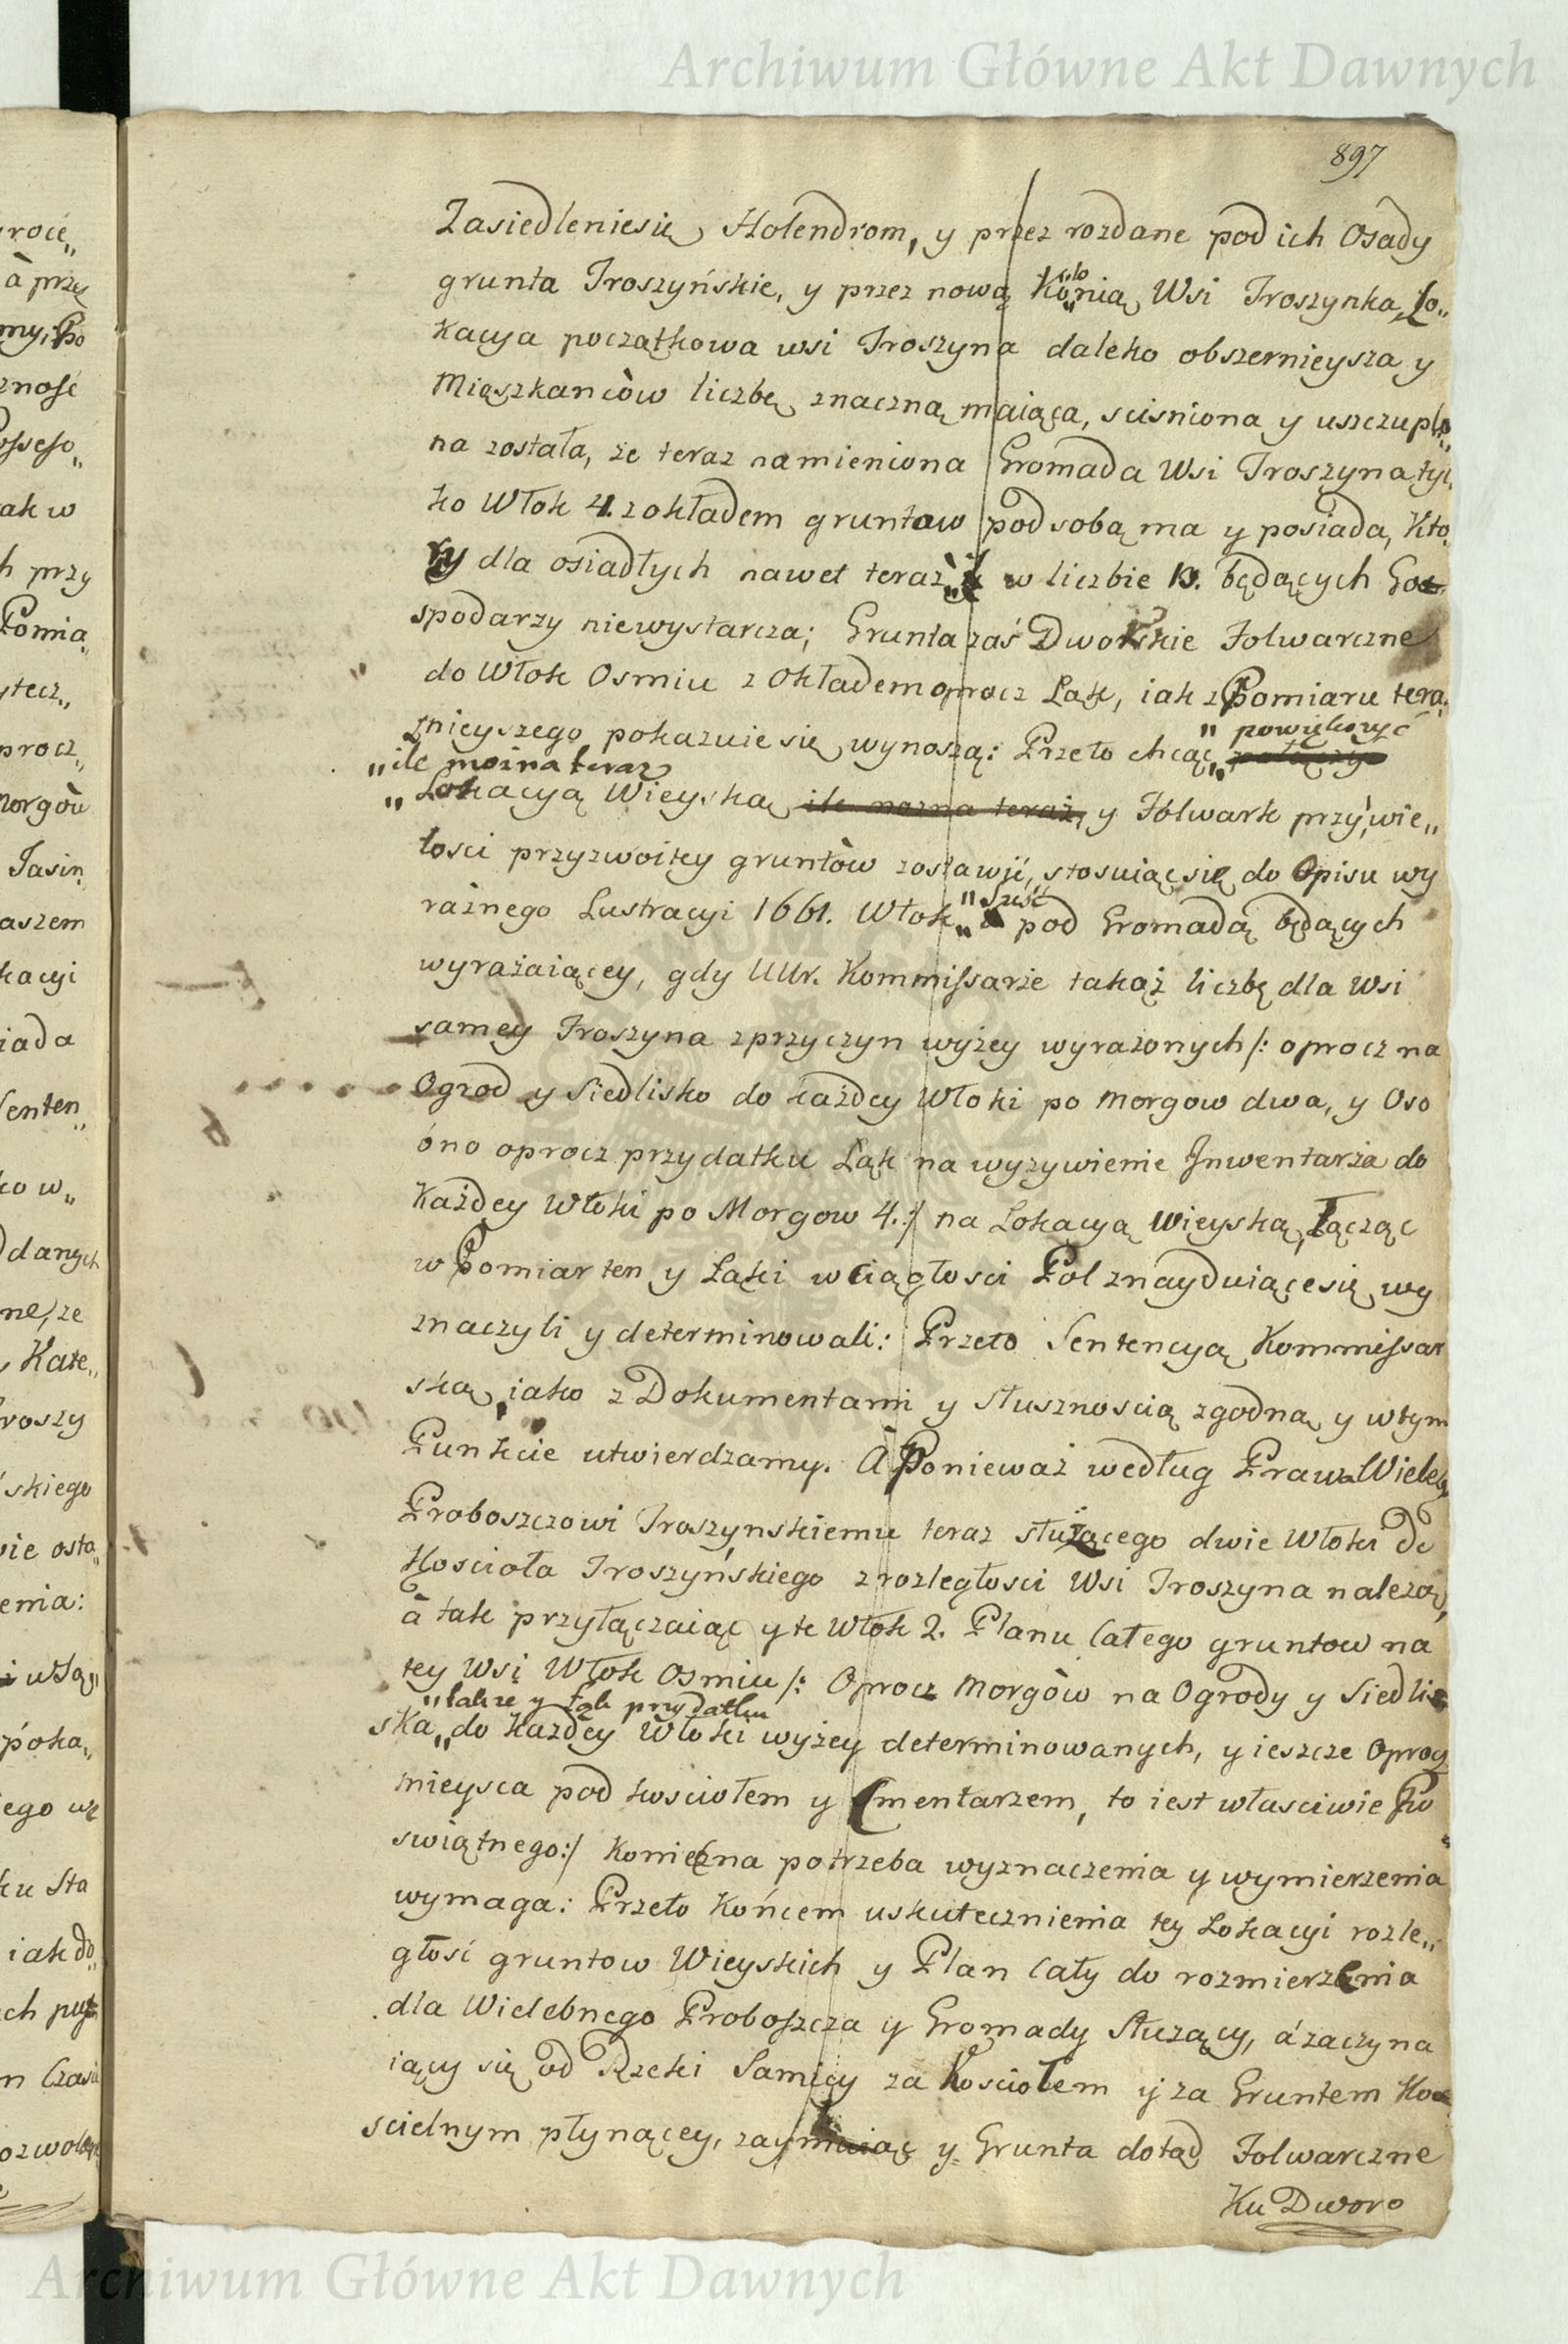 Archiwum Główne Akt Dawnych
897
Zasiedleniesię Holendrom, y przez rozdane pod ich Osady
grunta Troszyńskie, y przez nową Ko"lo"nią Wsi Troszynka, Lo„
kacya początkowa wsi Troszyna daleko obszernieysza y
Mięszkańcòw liczbę znaczną maiąca, sciśniona y uszczuplo„
na została, że teraz namieniona Gromada Wsi Troszyna tyl„
ko Włok 4. z okładem gruntow pod sobą ma y posiada, Kto„
ry dla osiadłych nawet teraz w liczbie 10. będących Go„
spodarzy niewystarcza; Grunta zaś Dworskie Folwarczne
do Włok Osmiu z Okładem oprocz Łąk, iak z Pomiaru tera„
znieyszego pokazuie się wynoszą: Przeto chcąc „ powiększyć
„ile można teraz
„Lokacyą Wieyską ile mozna teraz, y Folwark przy wie„
łosci przyzwoitey gruntòw zostawić, stosuiąc się do Opisu wy
raźnego Lustracyi 1661. Włok „Sześć pod Gromadą będących
wyrażaiącey, gdy UUr. Kommissarze takąż liczbę dla Wsi
samey Troszyna z przyczyn wyżey wyrażonych /: oprocz na
Ogrod y Siedlisko do każdey Włoki po morgow dwa, y Oso
bno oprocz przydatku Łąk na wyzywienie Jnwentarza do
Każdey Włoki po Morgow 4.:/ na Lokacyą Wieyską, Łącząc
w Pomiar ten y Łąki w ciągłosci Pol znayduiące się wy
znaczyli y determinowali: Przeto Sentencyą Kommissar
ską, iako z Dokumentami y słusznoscią zgodną y w tym
Punkcie utwierdzamy. A Ponieważ według Prawa Wieleb
Proboszczowi Troszynskiemu teraz służącego dwie Włoki do
Koscioła Troszyńskiego z rozległosci Wsi Troszyna należą,
à tak przyłączaiąc y te Włok 2. Planu całego gruntow na
tey Wsi Włok Osmiu /: Oprocz Morgòw na Ogrody y Siedlis
„także y Łąk przydatku
ska „do każdey Włoki wyżey determinowanych, y ieszcze Oprocz
mieysca pod kosciołem y Cmentarzem, to iest własciwie Po
swiątnego:/ Konieczna potrzeba wyznaczenia y wymierzenia
wymaga: Przeto Końcem uskutecznienia tey Lokacyi rozle„
głosć gruntow Wieyskich y Plan cały do rozmierzenia
dla Wielebnego Proboszcza y Gromady służący, á zaczyna
iący się od Rzeki Samicy za Kosciołem y za Gruntem Ko
scielnym płynącey, zaymuiąc y Grunta dotąd Folwarczne
Ku Dworo
Archiwum Główne Akt Dawnych